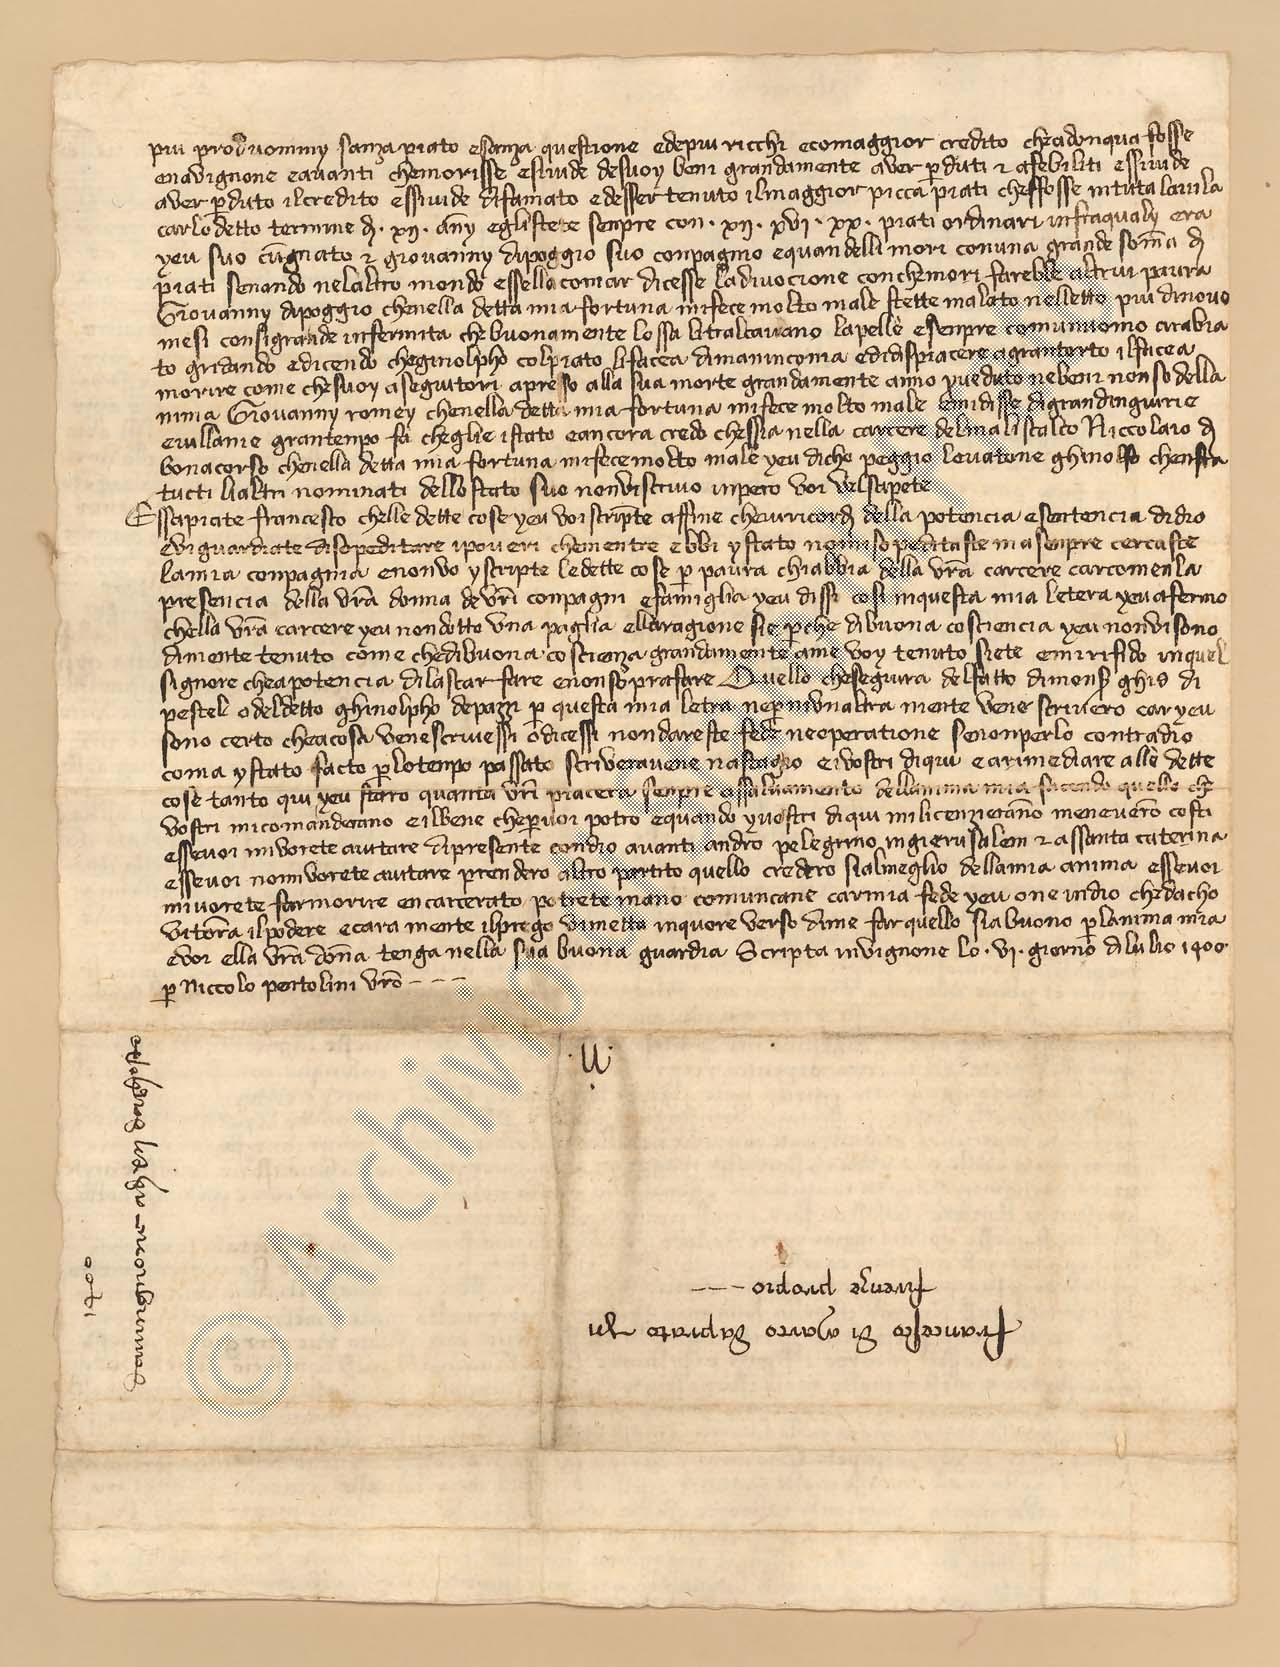 piu prod uommy sanza piato esanza questione edepiu ricchi ecomaggior credito cheadonqua fosse
enavignone eavanti chemorisse esivide desuoy beni grandamente aver pduti & afebiliti essivide
aver pduto ilcredito essivide difamato edesser tenuto ilmaggior picca piati cheffosse intuta lavila
carlo detto termine d · xij · anny eglistete senpre con · xij · xvj · xx · piati ordinari infraqualy era
yeu suo cugnato & giovanny dapoggio suo conpagnio equandelli mori conuna grande soma d
piati senando nelaltro mondo essella comar dicesse ladivocione conchemori farebbe altrui paura
Giovanny dapoggio chenella detta mia fortuna mifece molto male stette malato nelletto piu dinovo
mesi consigrande infermita chebuonamente lossa litralcavano lapelle esenpre comunuomo arabia
to gridando edicendo cheginolpho colpiato lifacea dimaninconia edidispiacere agrantorto ilfacea
morire come chesuoy aseguitori apresso alla sua morte grandamente anno yveduto nebeni nonso della
nima Giovanny romey chenella detta mia fortuna mifece molto male emidisse digrandingiurie
evillanie grantenpo fa cheglie istato eancora credo chessia nella carcere delmaliscalco Niccolaio d
bonacorso chenella detta mia fortuna mifece molto male yeu dicho peggio levatone ghinolfo chenfra
tucti lialtri nominati dello stato suo nonviscrivo inpero voi velsapete
Essapiate francesco chelle dette cose yeu voi scripte affine cheviricord della potencia esentencia didio
eviguardiate disopeditare ipoveri chementre ebbi ystato nonmisopeditaste masenpre cercaste
lamia conpagnia enonvo yscripte le dette cose p paura chiabbia della vra carcere carcomenla
presencia della vra donna de vri conpagni efamiglia yeu dissi cosi inquesta mia letera yeu afermo
chella vra carcere yeu nondotto una paglia ellaragione sie pche dibuona cosciencia yeu nonvisono
dimente tenuto come chedibuona coscienza grandamente ame voy tenuto siete emirifido inquel
signore chea potencia dilasciar fare enonsoprafare Quello cheseguira delfatto dimons ghis di
pestel odeldetto ghinolpho depazzi p questa mia letra nepnivnaltra mente vene scrivero car yeu
sono certo cheacosa venescrivessi odicessi nondareste fede neoperatione senonperlo contradio
coma ystato facto plotenpo passato scriveravene nastagio eivostri diqui earimediare alle dette
cose tanto qui yeu staro quanta vri piacera senpre assalvamento dellanima mia facendo quello che
vostri micomanderano eilbene chepvoi potro equando yvostri diqui milicenzierano menevero costi
essevoi mivorete aiutare dipresente condio avanti andro pelegrino ingierusalem & assanta caterina
essevoi nonmivorete aiutare prendero altro partito quello credero sialmeglio dellamia anima essevoi
mivorete farmorire encarcerato potrete mano comuncane carmia fede yeu one indio chedacho
vitorra ilpodere ecara mente ilprego vimetta inquore verso dime far quello sia buono planima mia
evoi ella vra dona tenga nella sua buona guardia Scripta invignone lo · vj · giorno dilulio 1400
p Niccolo pertolini vro – – –
Francescho di marco da prato in
firenze proprio – – –
1400